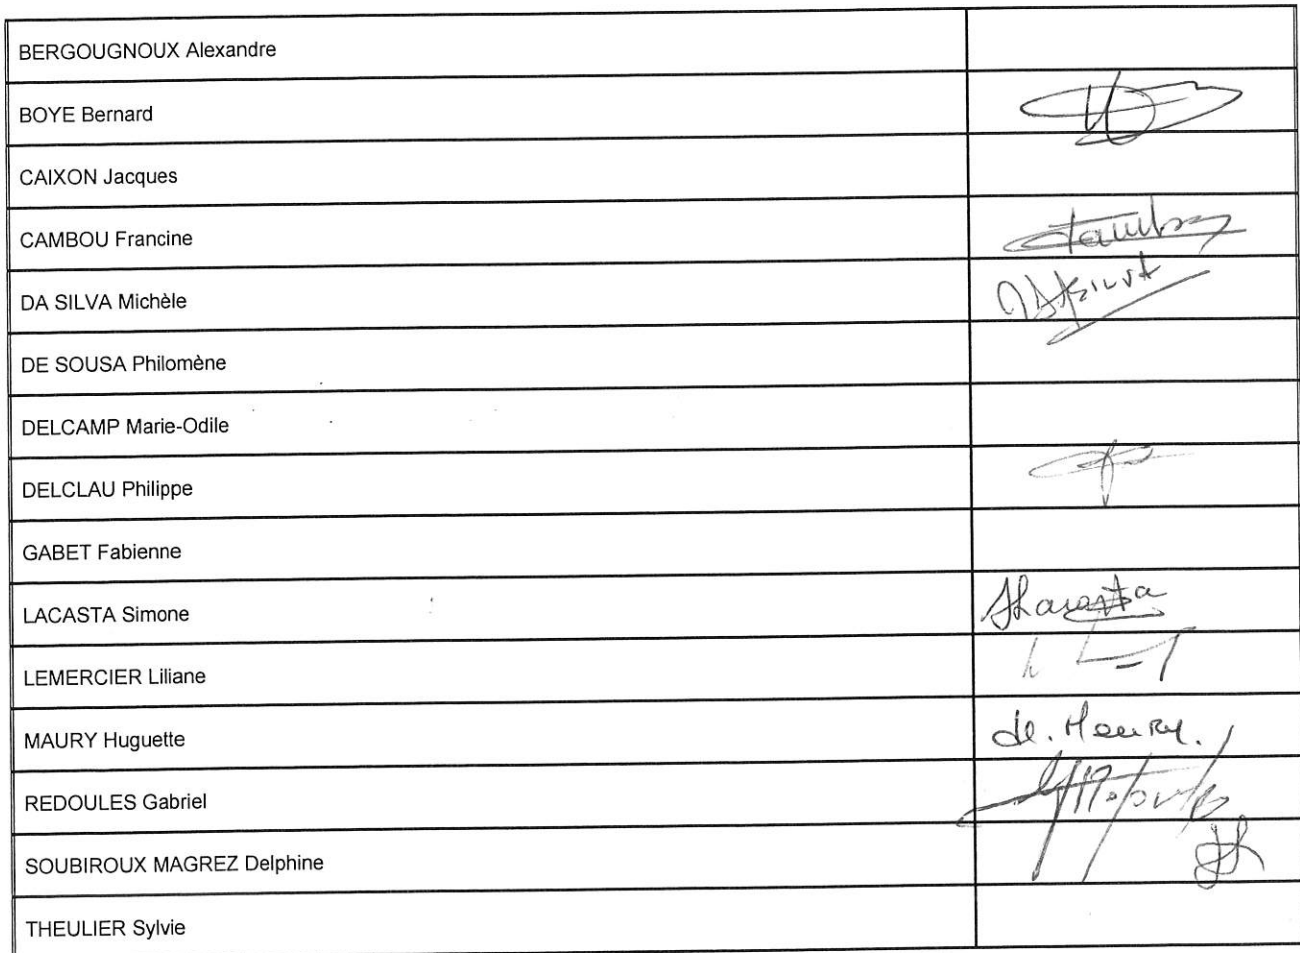 BERGOUGNOUX Alexandre
BOYE Bernard
CAIXON Jacques
CAMBOU Francine
DA SILVA Michèle
DE SOUSA Philomène
DELCAMP Marie-Odile
DELCLAU Philippe
GABET Fabienne
LACASTA Simone
LEMERCIER Liliane
MAURY Huguette
REDOULES Gabriel
SOUBIROUX MAGREZ Delphine
THEULIER Sylvie